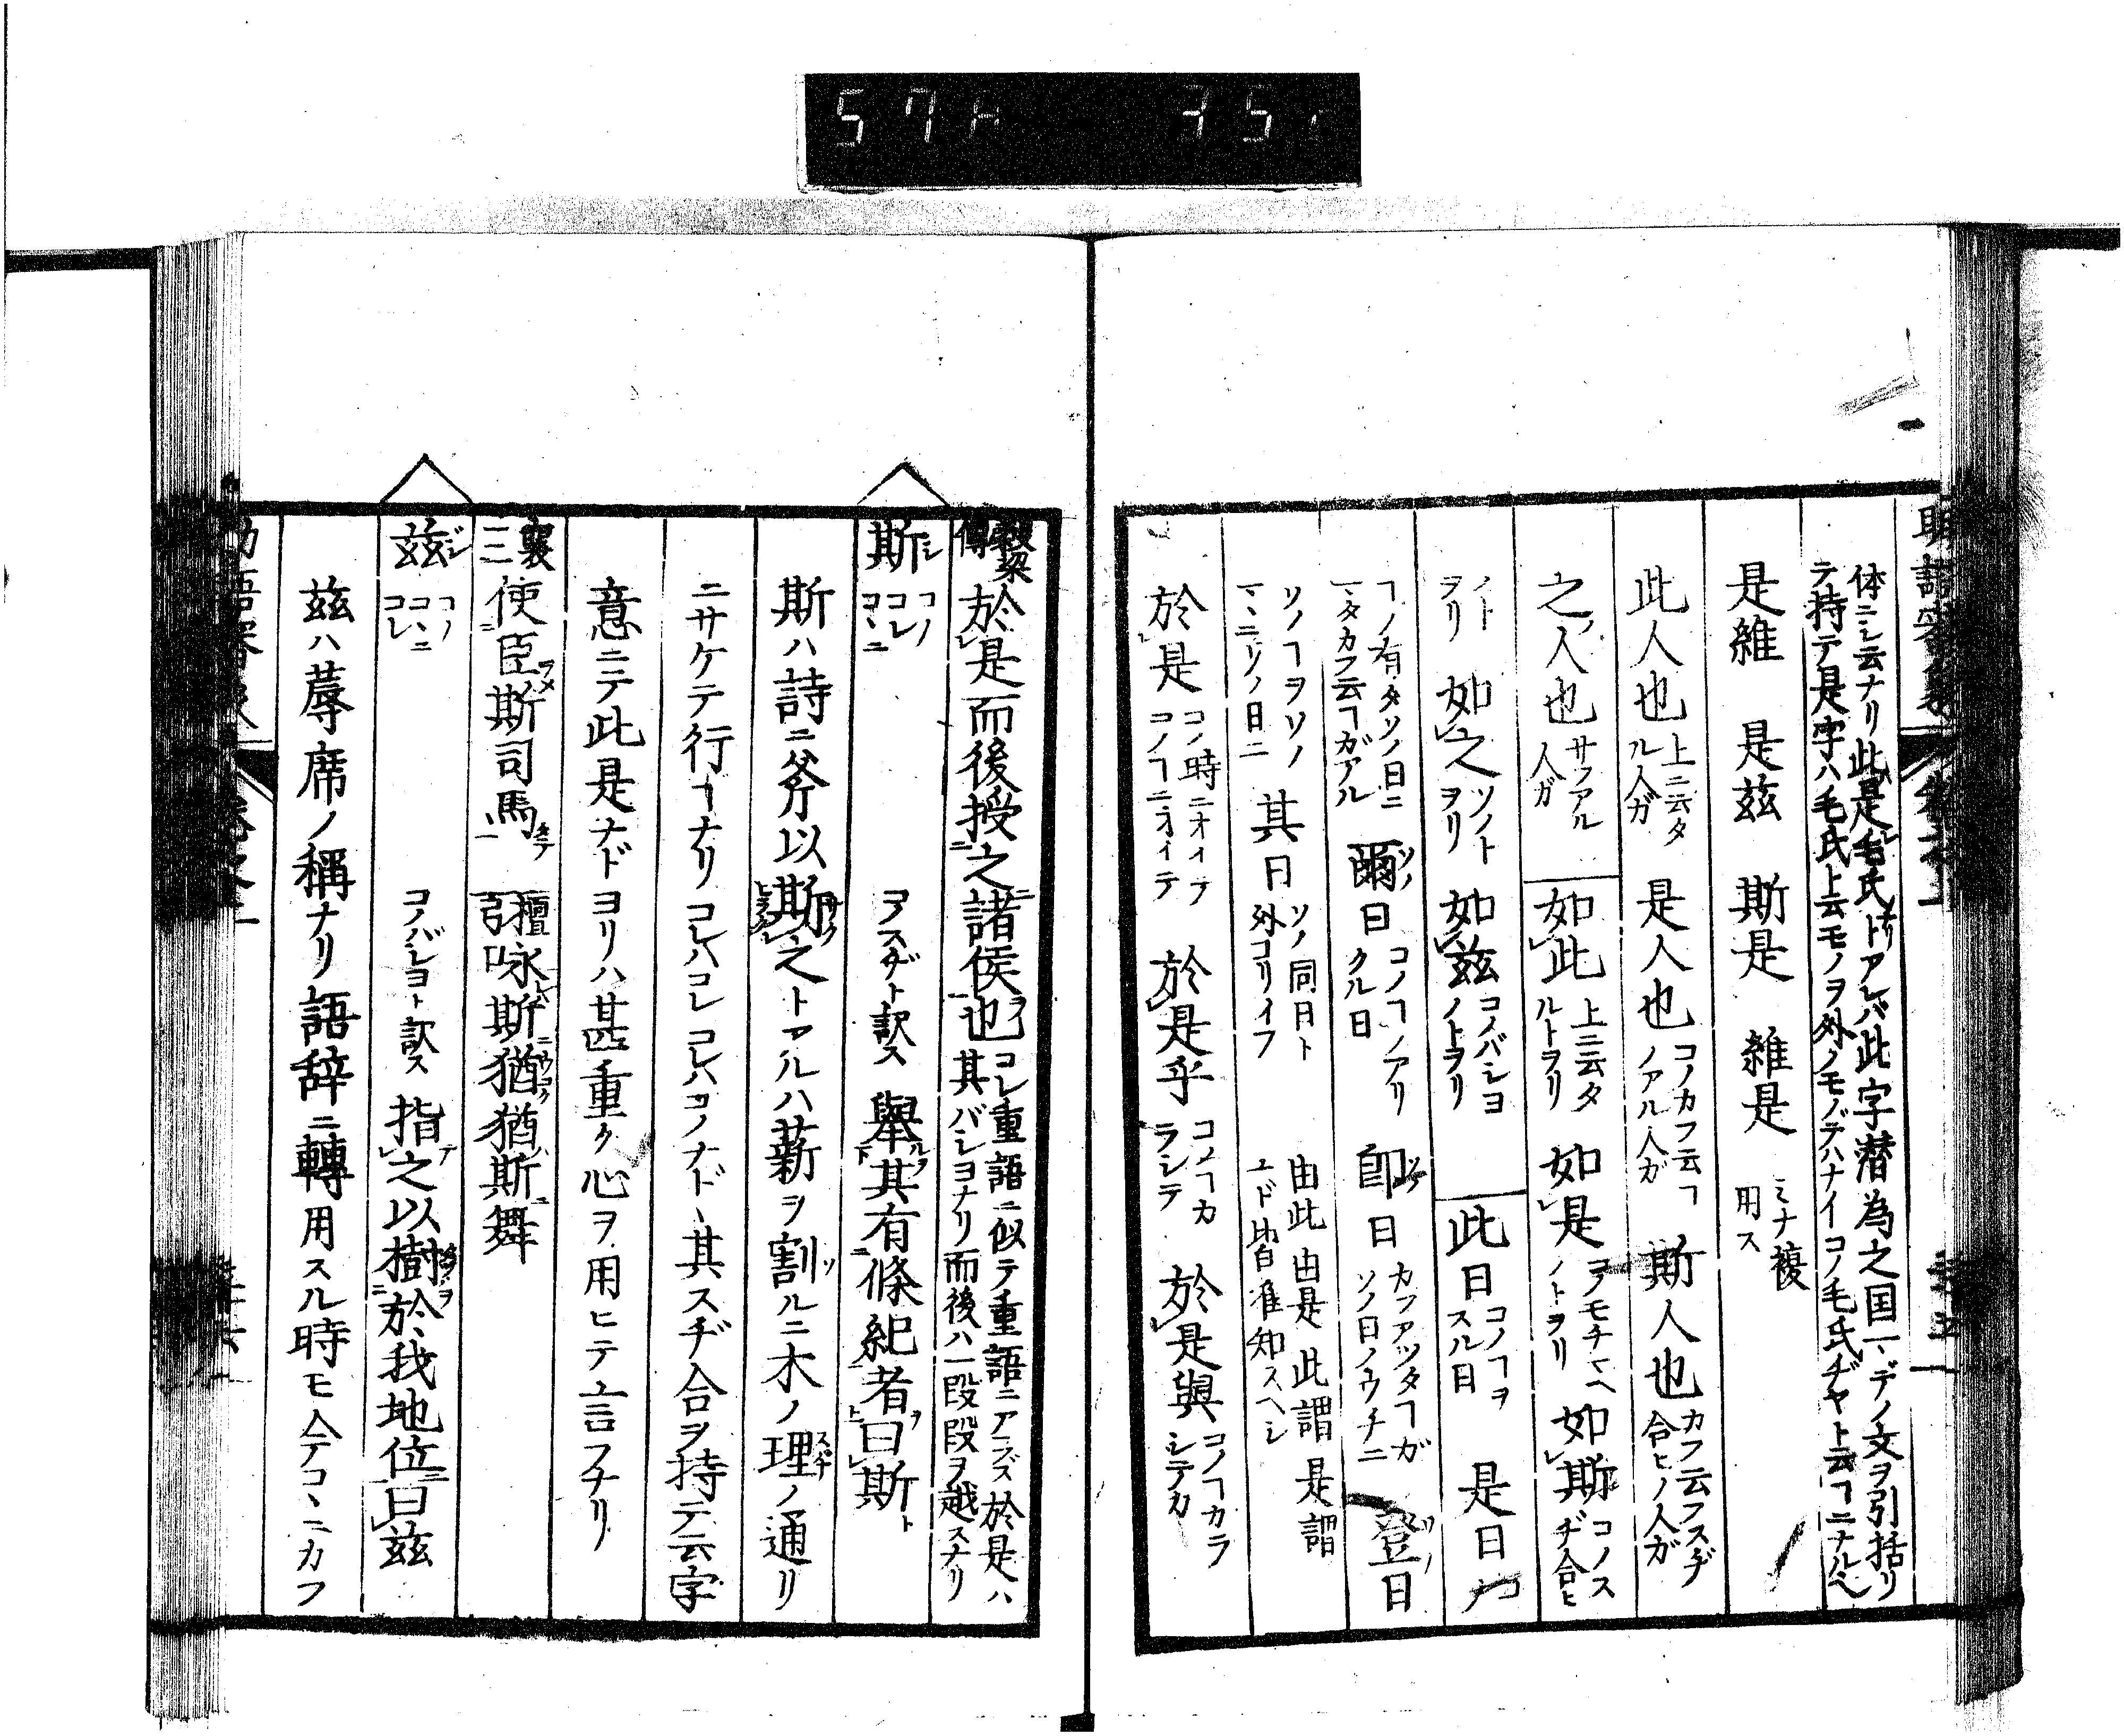 体ニシ云ナリ此是毛氏トアレバ此字潜為之国一ヽデノ文ヲ引括リ
テ持テ是字ハ毛氏上云モノヲ外ノモノデハナイコノ毛氏ヂヤト云ヿニナルヘシ
是維 是茲 斯是 維是 ミナ複用ス
此人也 上ニ云タル人ガ 是人也 コノカフ云ヿノアル人ガ 斯人也 カフ云フスヂ合ヒノ人ガ
之人也 サフアル人ガ 如此 上ニ云タルトヲリ 如是 ノトヲリ 如斯 コノスヂ合ヒ
ノトヲリ 如之 ソノトヲリ 如茲 コノバシヨノトヲリ 此日 コノヿヲスル日 是日 コノ
ヿノ有タソノ日ニマタカフ云ヿガアル 爾日 コノヿノアリクル日 即日 カフアツタヿガソノ日ノウチニ 登日
ソノヿヲソノマヽニソノ日ニ 其日 ソノ同日ト外ヨリイフ 由此 由是 此謂 是謂 ナド皆准知スヘシ
於是 コノ時ニオイテコノヿニオイテ 於是乎 コノヿカラシテ 於是與 コノヿカラシテカ
繋傳 於是而後授之諸侯也 コレ重語ニ似テ重語ニアラズ於是ハ其バシヨナリ而後ハ一段段ヲ越スナリ
斯 シ コノ コレ コヽニ コノスヂト訳ス 舉其有條紀者曰斯
斯ハ詩ニ斧以斯之トアルハ薪ヲ割ルニ木ノ理ノ通リ
ニサケテ行ヿナリコレハコレコレハコノナドヽ其スヂ合ヲ持テ云字
意ニテ此是ナドヨリハ甚重ク心ヲ用ヒテ言フナリ
襄三 使臣斯司馬 檀弓 咏斯猶猶斯舞
茲 シ コノ コヽニ コレ コノバシヨト訳ス 指之以樹於我地位曰茲
茲ハ蓐席ノ稱ナリ語辞ニ轉用スル時モ今テコヽニカフ